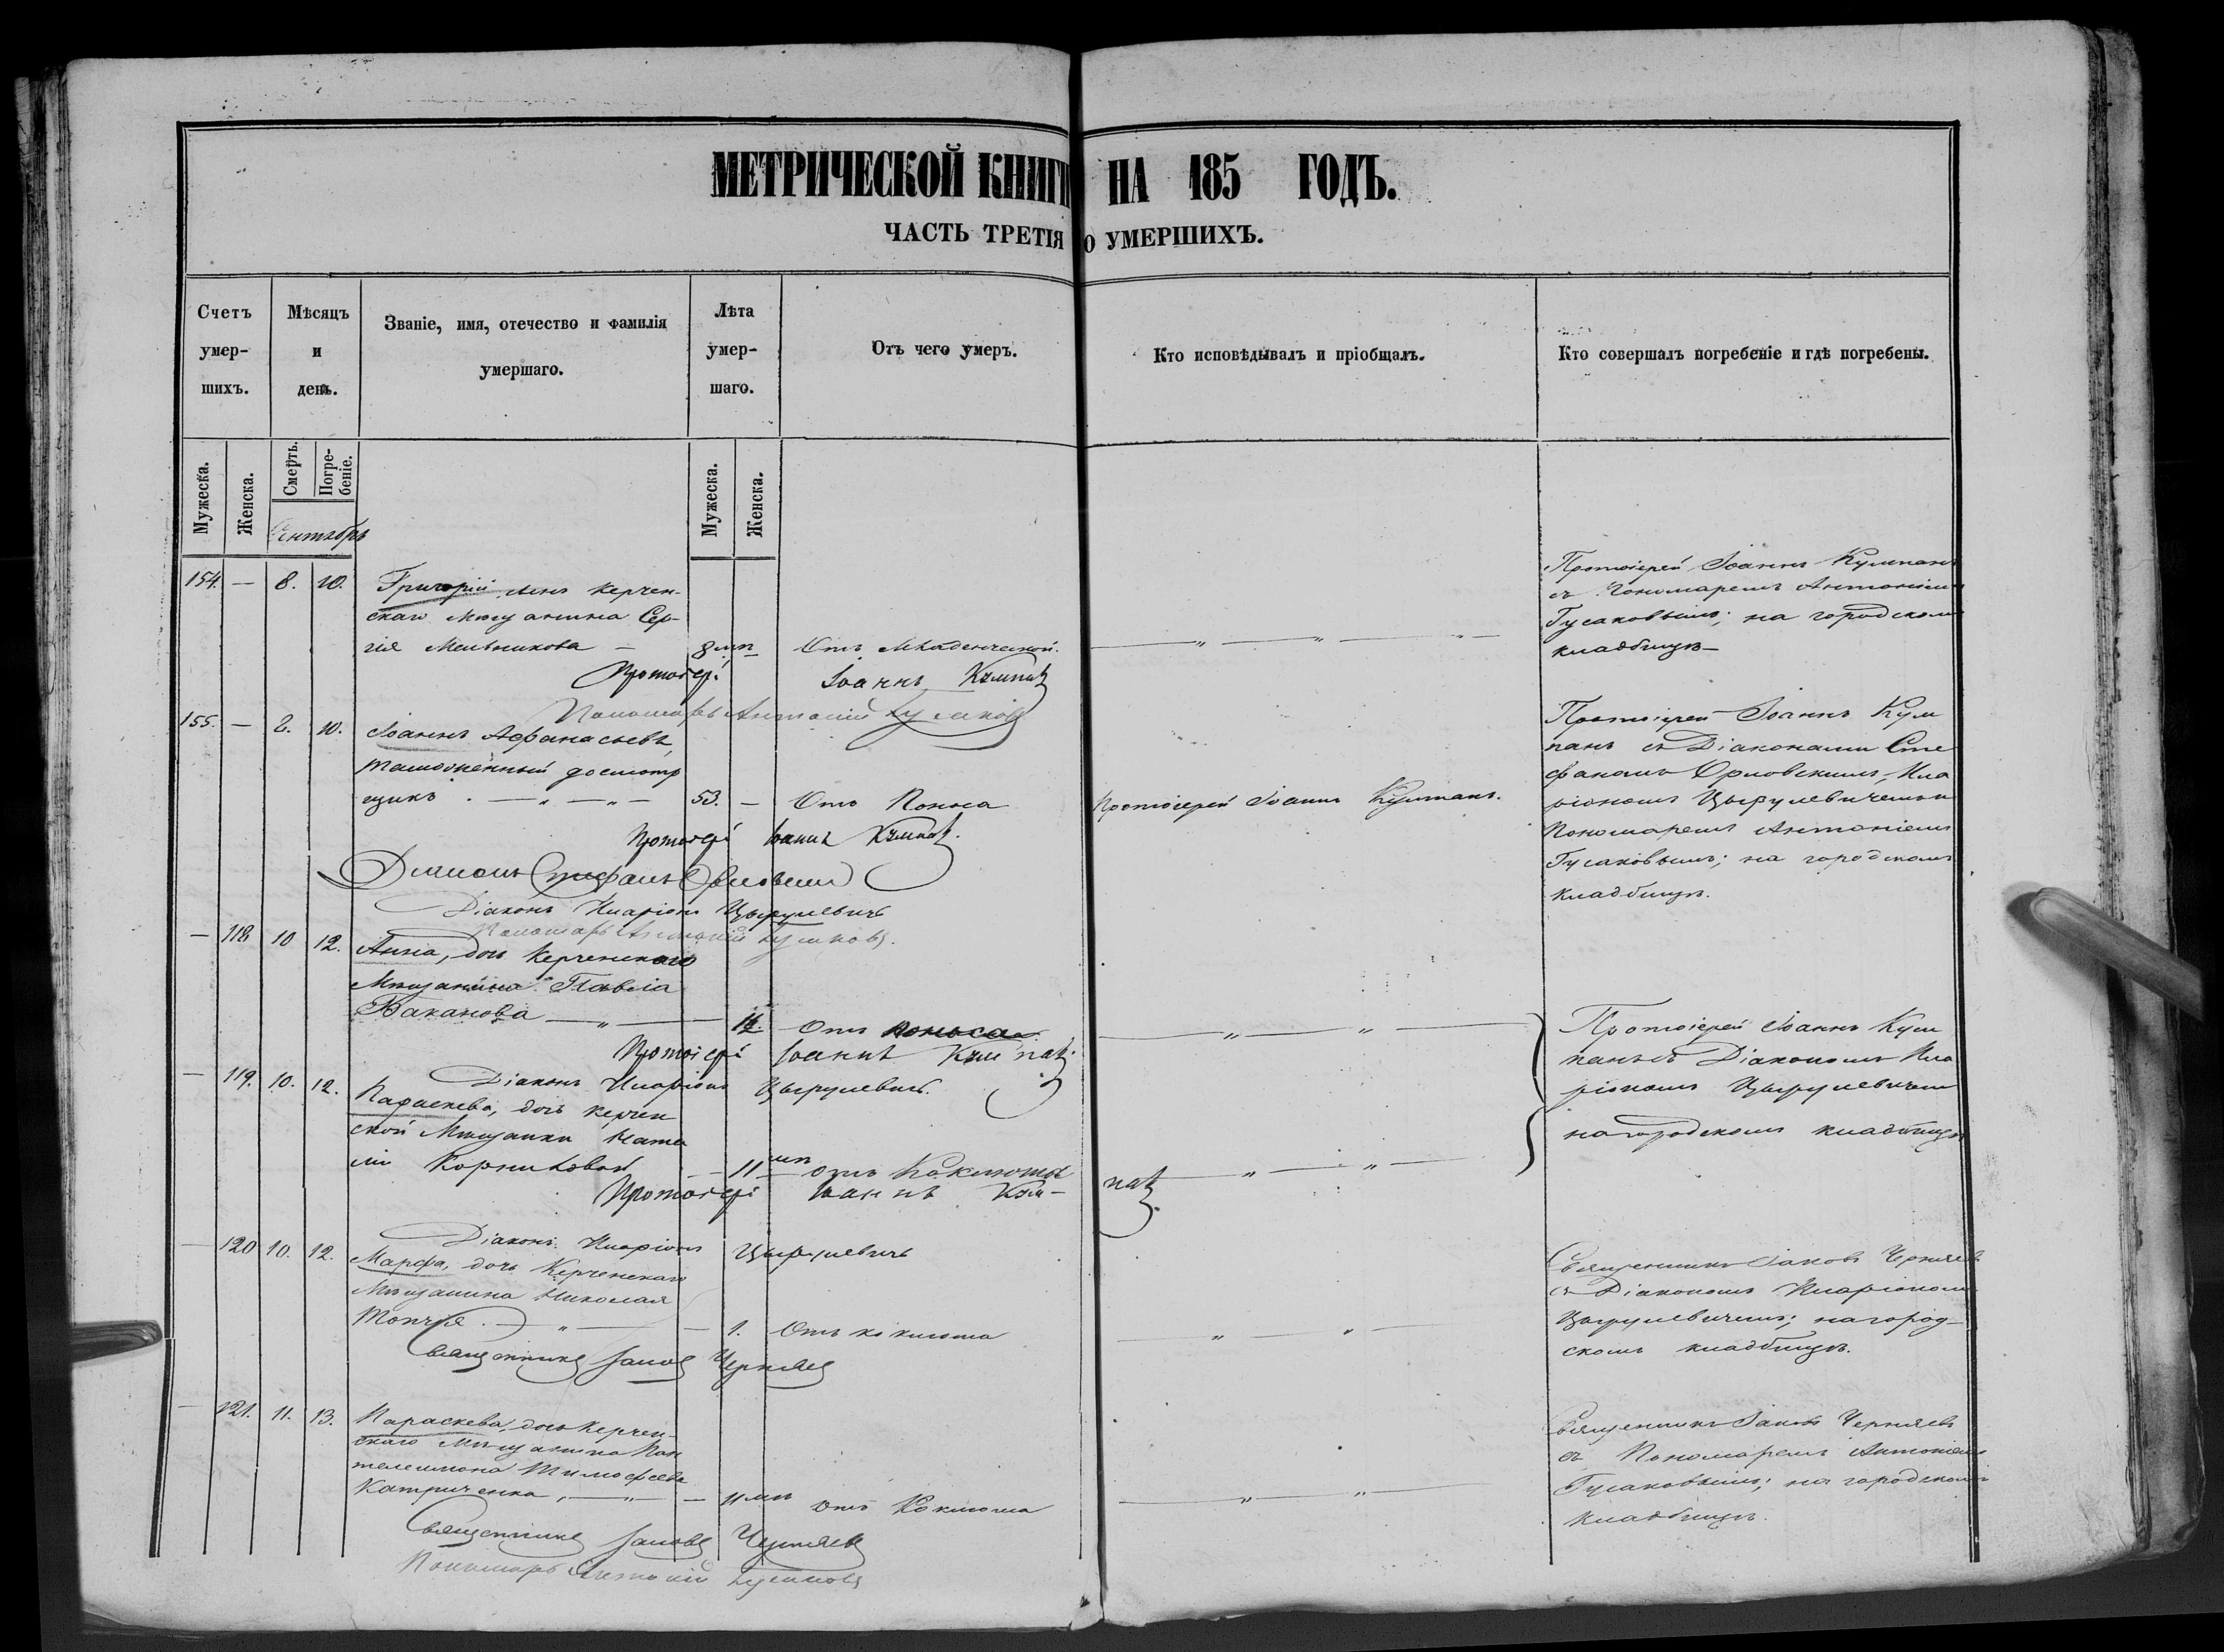 МЕТРИЧЕСКОЙ КНИГИ НА 185 ГОДЪ.
ЧАСТЬ ТРЕТІЯ О УМЕРШИХЪ.
Счетъ умер- шихъ.
Мѣсяцъ и день.
Званіе, имя, отечество и фамилія умершаго.
Лѣта умер- шаго.
Отъ чего умеръ.
Кто исповѣдывалъ и пріобщалъ.
Кто совершалъ погребеніе и гдѣ погребены.
Мужеска.
Женска.
Смерть.
Погре- беніе.
Мужеска.
Женска.
Сентябрь
154. — 8. 10. Григорій, сынъ Керчен-
скаго мѣщанина Сер-
гія Мельникова — 8 мц Отъ младенческой.
Протоіерей Іоаннъ Кумпанъ
Пономарь Антоній Гусаковъ
Протоіерей Іоаннъ Кумпанъ
съ Пономаремъ Антоніемъ
Гусаковымъ; на городскомъ
кладбищѣ—
155. — 8. 10. Іоаннъ Афанасьевъ,
таможенный досмотр
щикъ. — „ — „ — 53. — Отъ Поноса
Протоіерей Іоаннъ Кумпанъ.
Протоіерей Іоаннъ Кумпанъ.
Діаконъ Стефанъ Орловскій
Діаконъ Иларіонъ Цырулевичъ
Пономарь Антоній Гусаковъ.
Протоіерей Іоаннъ Кум
панъ съ Діаконами Сте
фаномъ Орловскимъ, Ила
ріономъ Цырулевичемъ и
Пономаремъ Антоніемъ
Гусаковымъ; на городскомъ
кладбищѣ.
— 118 10 12. Анна, дочь Керченскаго
Мѣщанина Павла
Баканова — „ — Отъ поноса
Протоіерей Іоаннъ Кумпанъ.
Діаконъ Иларіонъ Цырулевичъ.
— 119. 10. 12. Параскева, дочь Керчен
ской Мѣщанки Ната
ліи Корниловой — 11 мц отъ Коклюша
Протоіерей Іоаннъ Кум-
панъ.
Діаконъ Иларіонъ Цырулевичъ
Протоіерей Іоаннъ Кум
панъ съ Діакономъ Ила
ріономъ Цырулевичемъ
на городскомъ кладбищѣ
— 120 10. 12. Марфа, дочь Керченскаго
Мѣщанина Николая
Топчія. — „ — 1. Отъ коклюша
Священникъ Іаковъ Черняевъ
Священникъ Іаковъ Черняевъ
съ Діакономъ Иларіономъ
Цырулевичемъ; на город-
скомъ кладбищѣ.
— 121. 11. 13. Параскева, дочь Керчен-
скаго Мѣщанина Пан
телеимона Тимофеева
Катриченка, — „ — 11 мц отъ Коклюша
Священникъ Іаковъ Черняевъ
Пономарь Антоній Гусаковъ
Священникъ Іаковъ Черняевъ
съ Пономаремъ Антоніемъ
Гусаковымъ; на городскомъ
кладбищѣ.